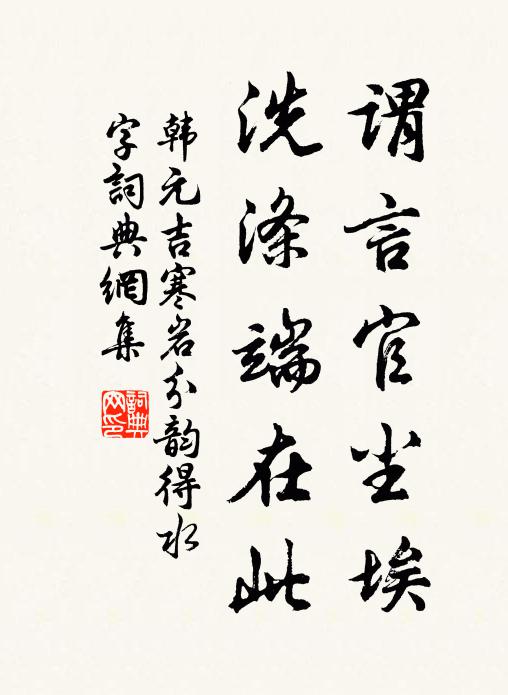 谓言官尘埃
洗涤端在此
韩元吉寒岩分韵得水
字詞典網集
詞典网印